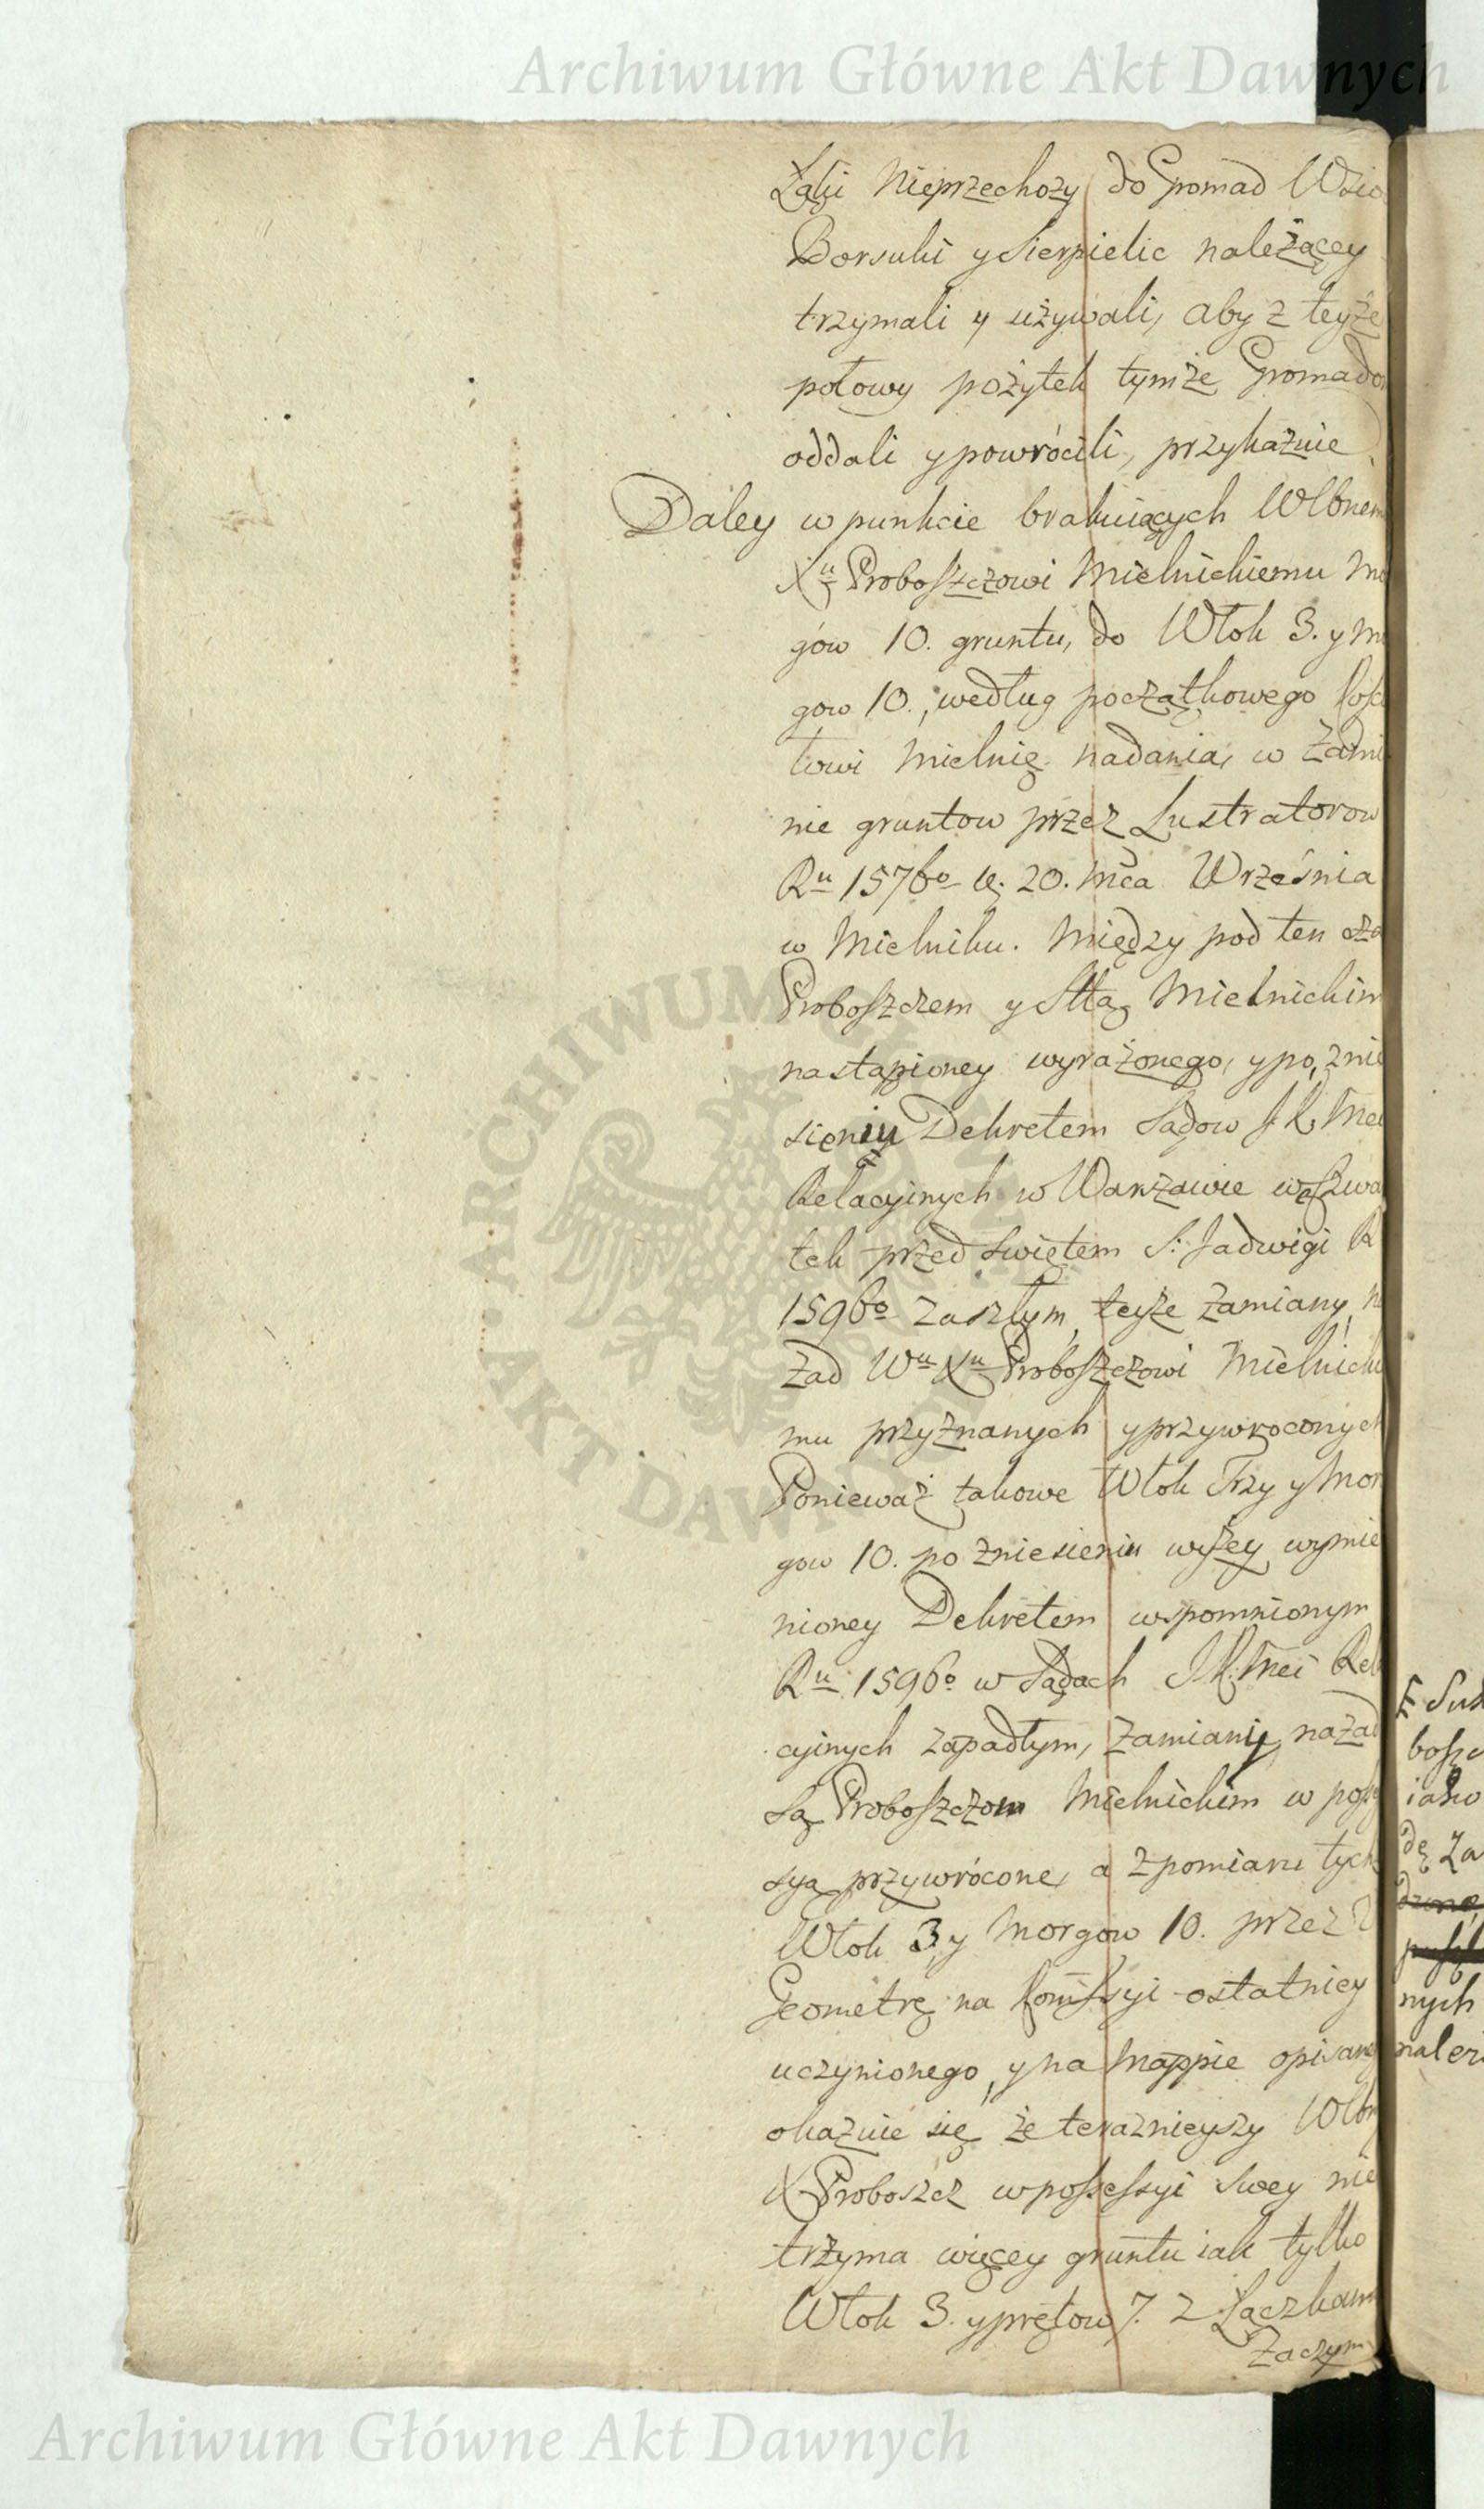 Archiwum Główne Akt Dawnych
Łąki Nieprzechozy do Gromad Wsio
Borsuki y Sierpielic należącey
trzymali y używali, aby z teyże
połowy pożytek tymże Gromado
oddali y powrócili, przykazuie
Daley w punkcie brakuiących Wlbnem
Xu Proboszczowi Mielnickiemu Mo
gów 10. gruntu, do Włok 3. y Mo
gow 10., według początkowego Kości
łowi Mielnic. nadania, w Zami
nie gruntow przez Lustratorow
Ru 1576o d. 20. Mca Września
w Mielniku. Między pod ten cza
Proboszczem y Sttą Mielnickim
nastąpioney wyrażonego, y po znie
sieniu Dekretem Sądow J K Mci
Relacyinych w Warszawie w Czwa
tek przed Swiętem S: Jadwigi R
1596o zaszłym, teyże Zamiany, n
zad Wu Xu Proboszczowi Mielnick
mu przyznanych y przywroconych
Ponieważ takowe Włok Trzy y Mor
gow 10. po zniesieniu wyżey wymie
nioney Dekretem wspomnionym
Ru 1596o w Sądach J K Mci Rela
cyinych zapadłym, Zamiany, nazad
Są Proboszczom Mielnickim w posse
syą przywrócone, a z pomiaru tych
Włok 3 y Morgow 10. przez
Geometrę na Kommissyi ostatniey
uczynionego, y na Mappie opisane
okazuie się, że teraznieyszy Wlbny
X Proboszcz w possessyi swey nie
trzyma więcey gruntu iak tylko
Włok 3. y prętow 7. z Łączkami
Zaczym
boszc
iako
dę Za
nych
nalez
ARCHIWUM GŁÓWNE AKT DAWNYCH
Archiwum Główne Akt Dawnych